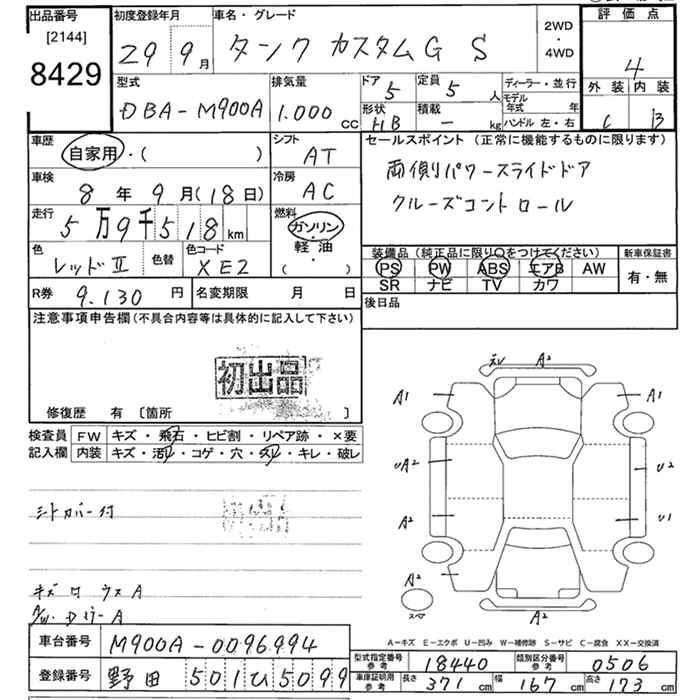 出品番号
[2144]
8429
初度登録年月
29 9月
車名・グレード
タンク カスタムG S
2WD
・
4WD
評価点
4
外装 内装
C B
型式
DBA-M900A
排気量
1.000 CC
ドア
5
定員
5 人
形状
HB
積載
- kg
ディーラー・並行
モデル年式 年
ハンドル 左・右
車歴
自家用・( )
シフト
AT
車検
8年 9月(18日)
冷房
AC
走行
5万9千518 km
燃料
ガソリン・
軽油・
( )
色
レッドⅡ
色替
色コード
XE2
R券 9.130円
名変期限 月 日
セールスポイント (正常に機能するものに限ります)
両側パワースライドドア
クルーズコントロール
装備品(純正品に限り○をつけてください)
PS PW ABS エアB AW
SR ナビ TV カワ
新車保証書
有・無
後日品
注意事項申告欄(不具合内容等は具体的に記入して下さい)
初出品
修復歴 有 〔箇所 〕
検査員記入欄
FW キズ・飛石・ヒビ割・リペア跡・×要
内装 キズ・汚れ・コゲ・穴・スレ・キレ・破レ
シートカバー付
初出品
A2
A1 A1
UA2 U2
A2 U1
A2
スペア
A2
A-キズ E-エクボ U-凹み W-補修跡 S-サビ C-腐食 XX-交換済
車台番号 M900A-0096994
登録番号 野田 501ひ5099
型式指定番号 参考 18440
類別区分番号 参考 0506
車庫証明用 参考 長さ 371cm 幅 167cm 高さ 173cm